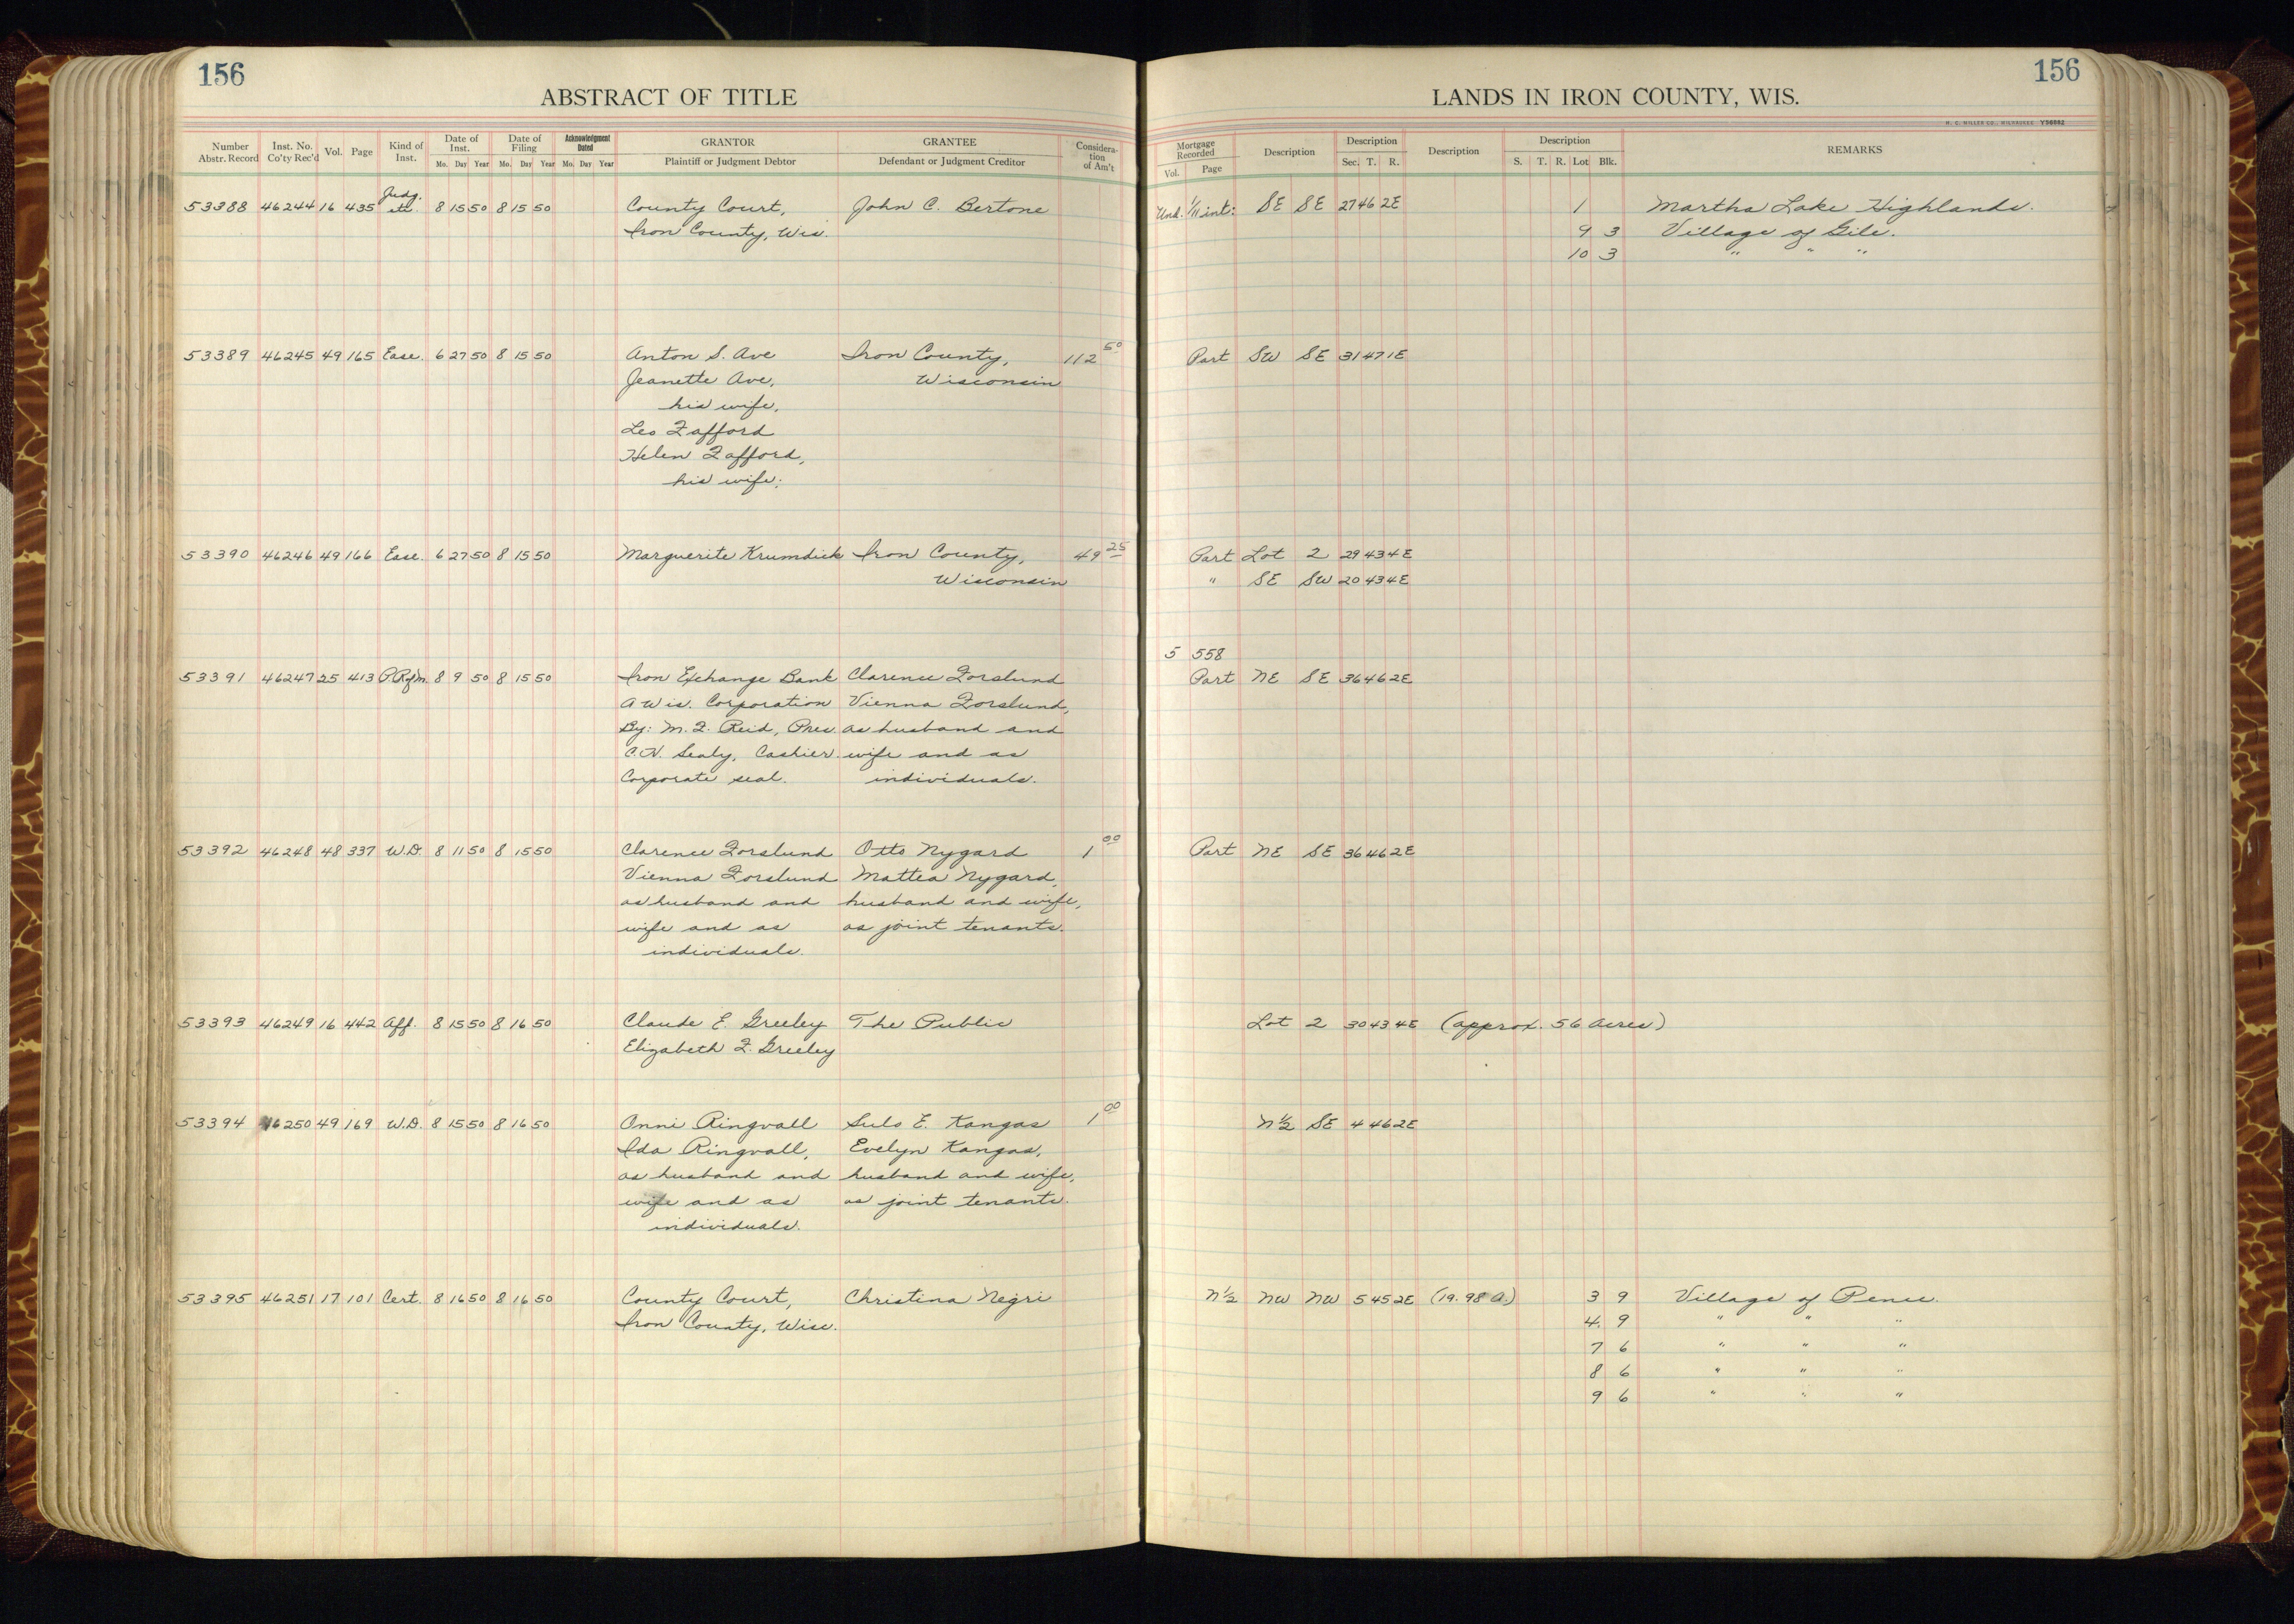 156
156
ABSTRACT OF TITLE
LANDS IN IRON COUNTY, WIS.
H. C. MILLER CO., MILWAUKEE Y56082
Number Abstr. Record Inst. No. Co'ty Rec'd Vol. Page Kind of Inst. Date of Inst. Mo. Day Year Date of Filing Mo. Day Year Acknowledgment Dated Mo. Day Year GRANTOR Plaintiff or Judgment Debtor GRANTEE Defendant or Judgment Creditor Consideration of Am't
Mortgage Recorded Vol. Page Description Description Sec. T. R. Description Description S. T. R. Lot Blk. REMARKS
53388 46244 16 435 Judg. etc. 8 15 50 8 15 50 County Court, John C. Bertone Und. 1/11 int: SE SE 27 46 2E 1 Martha Lake Highlands.
Iron County, Wis. 9 3 Village of Gile.
10 3 " " "
53389 46245 49 165 Ease. 6 27 50 8 15 50 Anton S. Ave Iron County, 112 50 Part SW SE 31 47 1E
Jeanette Ave, Wisconsin
his wife,
Leo Fafford
Helen Fafford,
his wife;
53390 46246 49 166 Ease. 6 27 50 8 15 50 Marguerite Krumdick Iron County, 49 25 Part Lot 2 29 43 4E
Wisconsin " SE SW 20 43 4E
5 558
53391 46247 25 413 8 9 50 8 15 50 Iron Exchange Bank Clarence Forslund Part NE SE 36 46 2E
A Wis. Corporation Vienna Forslund,
By: M. F. Reid, Pres. as husband and
C.N. Sealy, Cashier. wife and as
Corporate seal. individuals.
53392 46248 48 337 W.D. 8 11 50 8 15 50 Clarence Forslund Otto Nygard 1 00 Part NE SE 36 46 2E
Vienna Forslund Mattea Nygard,
as husband and husband and wife,
wife and as as joint tenants.
individuals.
53393 46249 16 442 Aff. 8 15 50 8 16 50 Claude E. Greeley The Public Lot 2 30 43 4E (approx. 56 acres)
Elizabeth F. Greeley
53394 46250 49 169 W.D. 8 15 50 8 16 50 Onni Ringvall Sulo E. Kangas 1 00 N½ SE 4 46 2E
Ida Ringvall, Evelyn Kangas,
as husband and husband and wife,
wife and as as joint tenants.
individuals.
53395 46251 17 101 Cert. 8 16 50 8 16 50 County Court, Christina Negri N½ NW NW 5 45 2E (19.98 A.) 3 9 Village of Pence.
Iron County, Wisc. 4 9 " " "
7 6 " " "
8 6 " " "
9 6 " " "